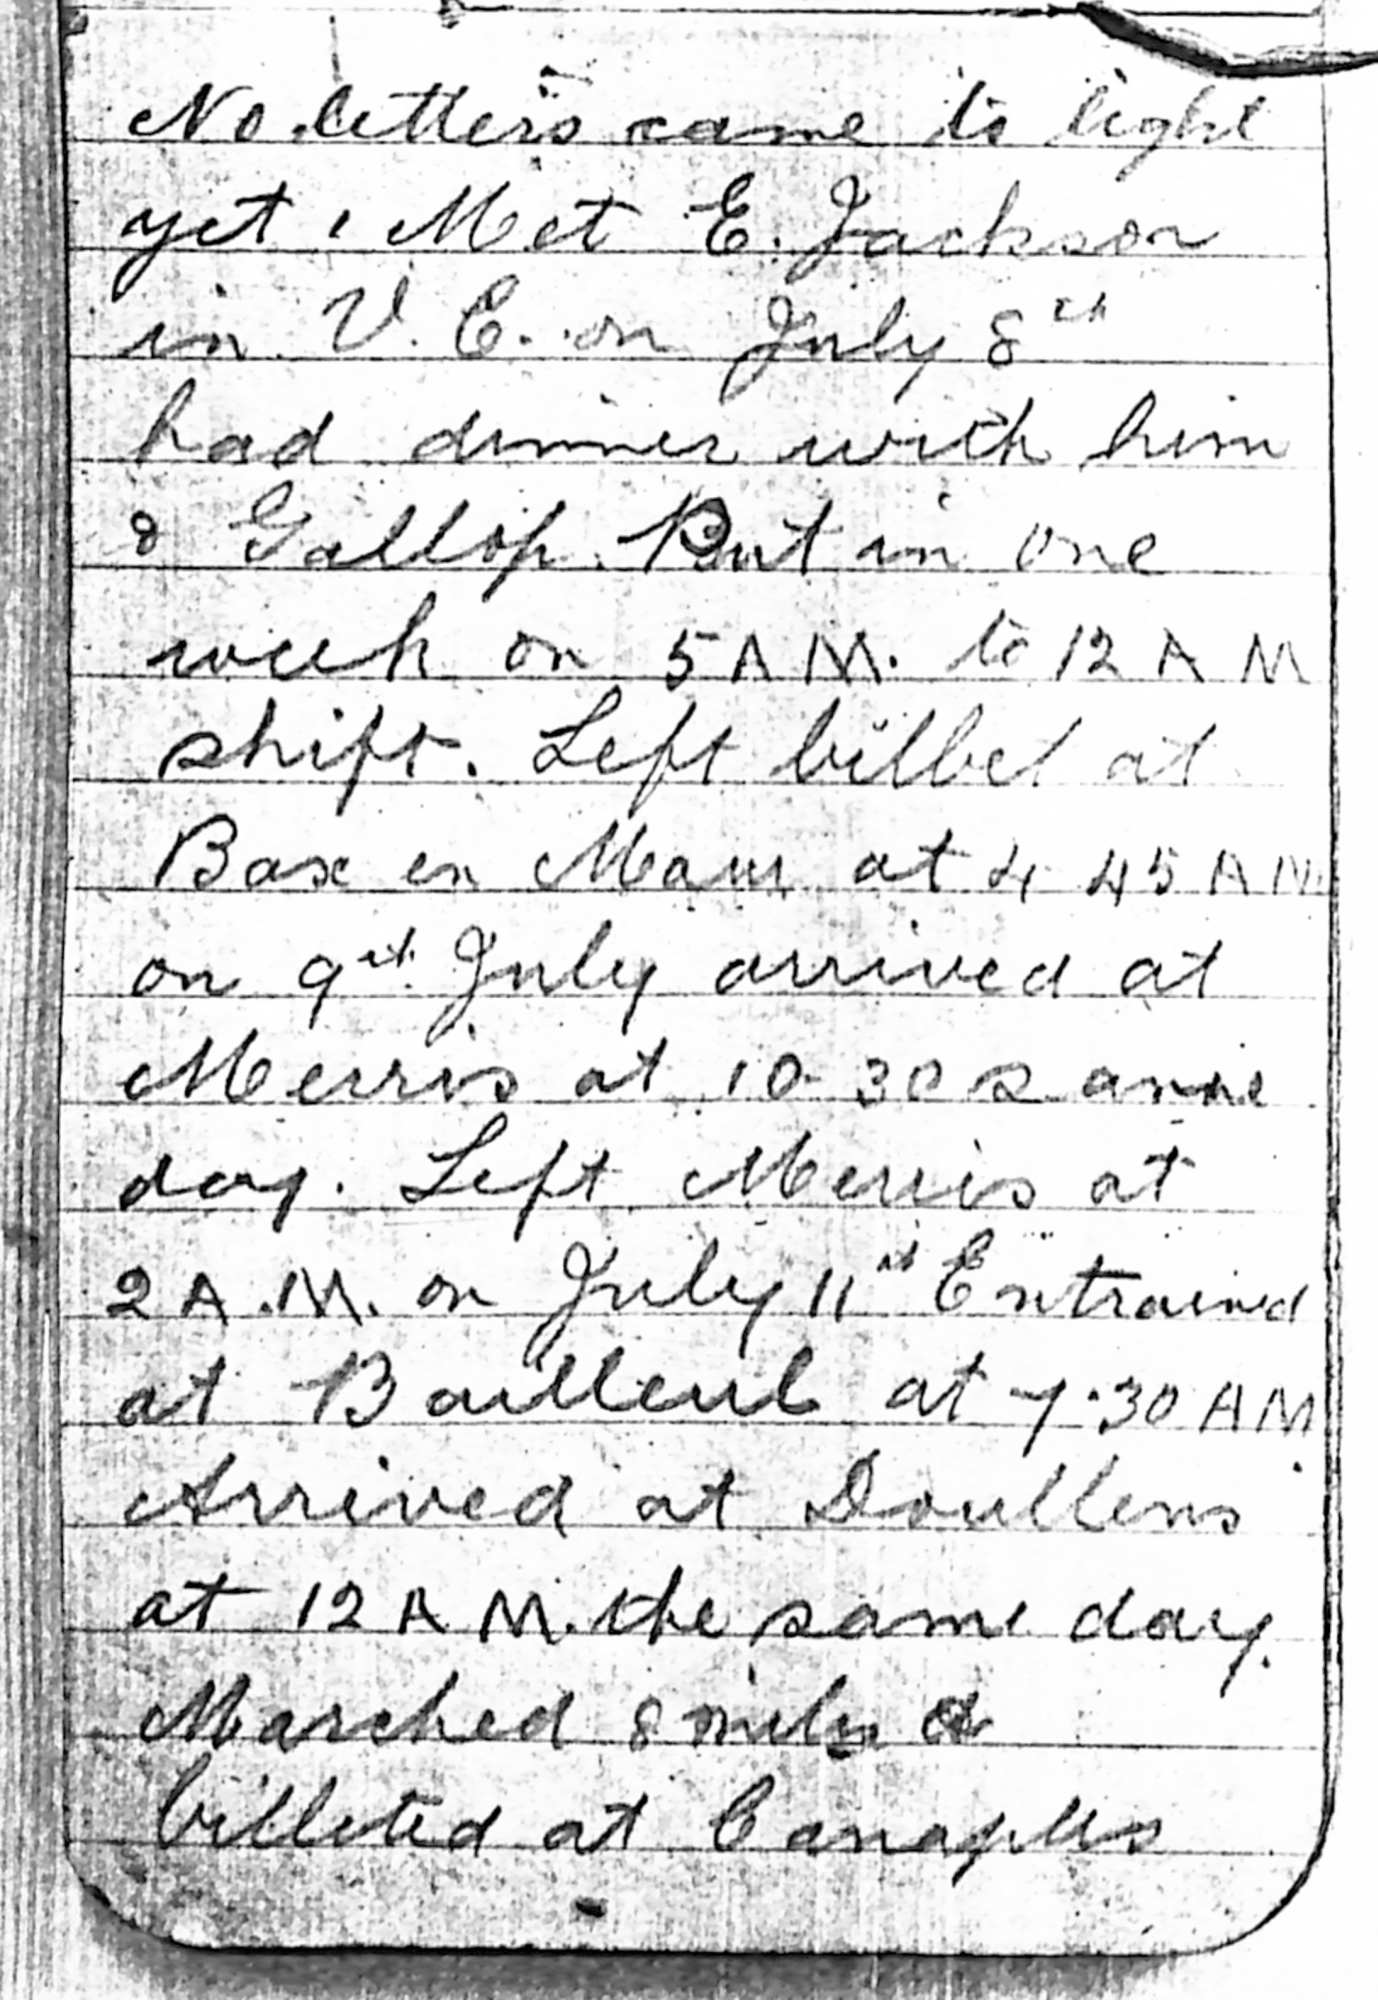 No letters came to light
yet. Met E. Jackson
in V. C. on July 8th
had dinner with him
& Gallop. Put in one
week on 5 A M. to 12 A M
shift. Left billet at
Bax en Maur at 4 45 A M
on 9th July arrived at
Merris at 10-30 same
day. Left Merris at
2 A.M. on July 11th Entrained
at Bailleul at 7.30 A M
Arrived at Doullens
at 12 A M. the same day.
Marched 8 miles &
billeted at Canaples